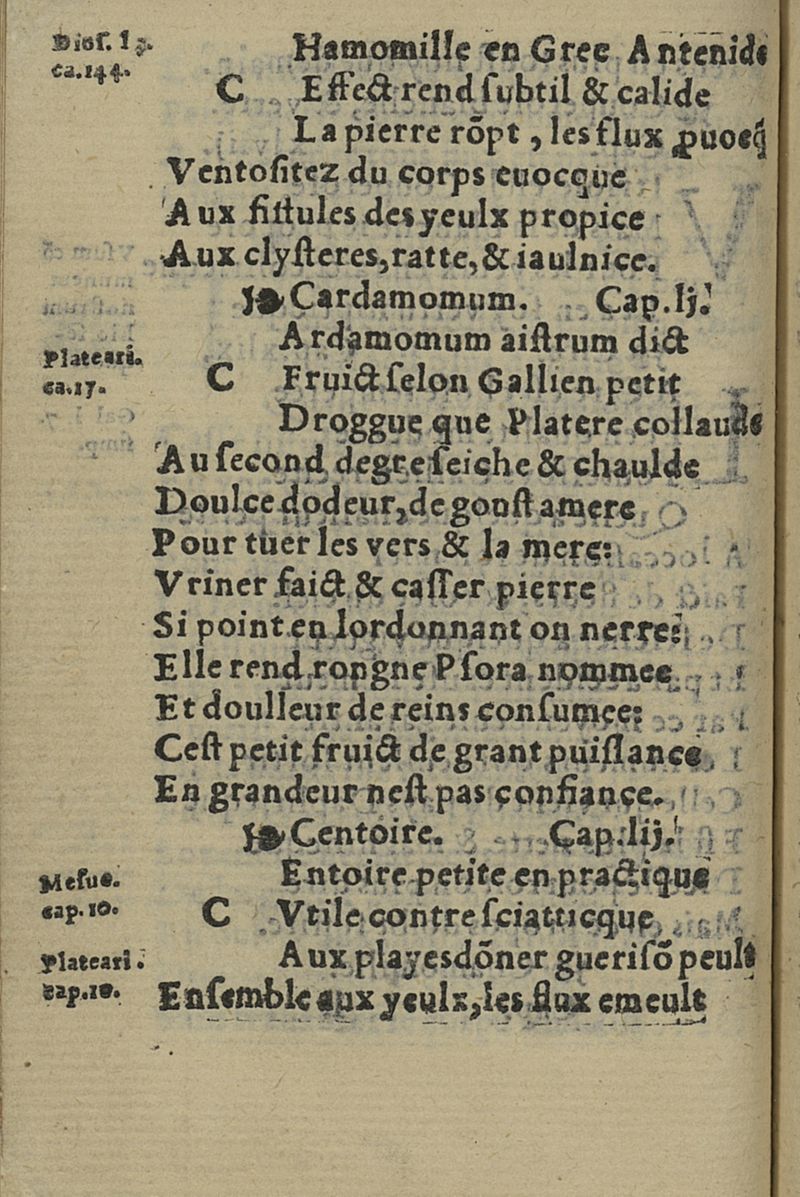 Dios. l 3.
Ca.144.
Hamomille en Grec Antenide
C Effect rend ſubtil & calide
La pierre rõpt , les flux ꝓuocq̃
Ventoſitez du corps euocque
Aux fiſtules des yeulx propice
Aux clyſteres, ratte, & iaulnice.
Cardamomum. Cap.Ij.
Ardamomum aiſtrum dict
Plateari.
ca.17.
C Fruict ſelon Gallien petit
Droggue que Platere collaude
Au ſecond degre ſeiche & chaulde
Doulce dodeur, de gouſt amere
Pour tuer les vers & la mere:
Vriner faict & caſſer pierre
Si point en lordonnant on nerre:
Elle rend rongne Pſora nommee
Et doulleur de reins conſumee:
Ceſt petit fruict de grant puiſſance
En grandeur neſt pas confiance.
Centoire. Cap.Iij.
Meſue.
cap.10.
Entoire petite en practique
C Vtile contre ſciatticque
Plateari.
cap.10.
Aux playes dõner gueriſõ peult
Enſemble aux yeulx, les flux emeult